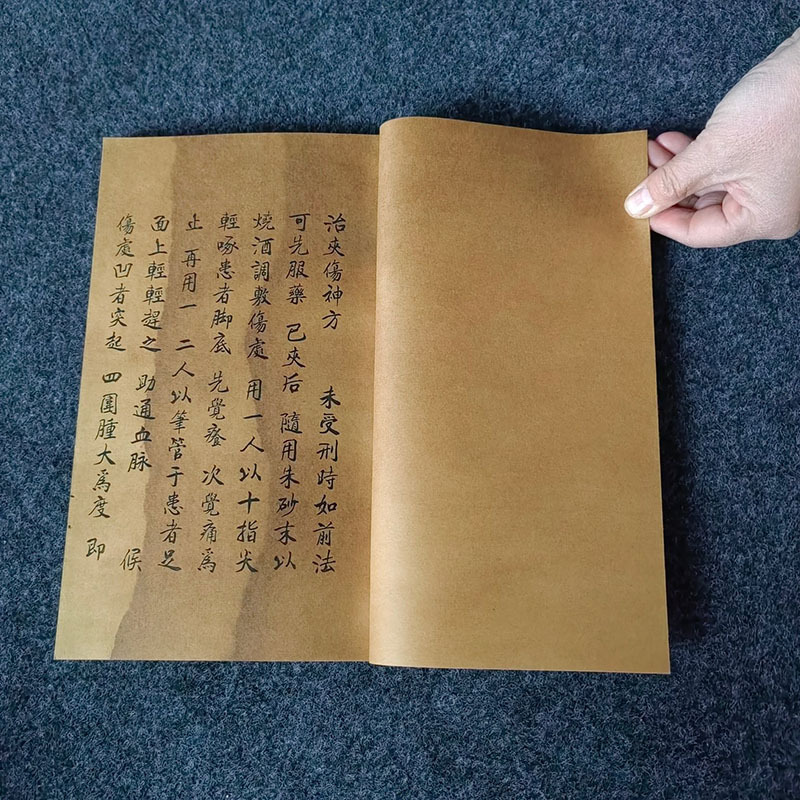 治夾傷神方 未受刑時如前法
可先服藥 已夾后 隨用朱砂末以
燒酒調敷傷處 用一人以十指尖
輕啄患者脚底 先覺癢 次覺痛爲
止 再用一 二人以筆管于患者足
面上輕輕趕之 助通血脉 候
傷處凹者突起 四圍腫大爲度 即